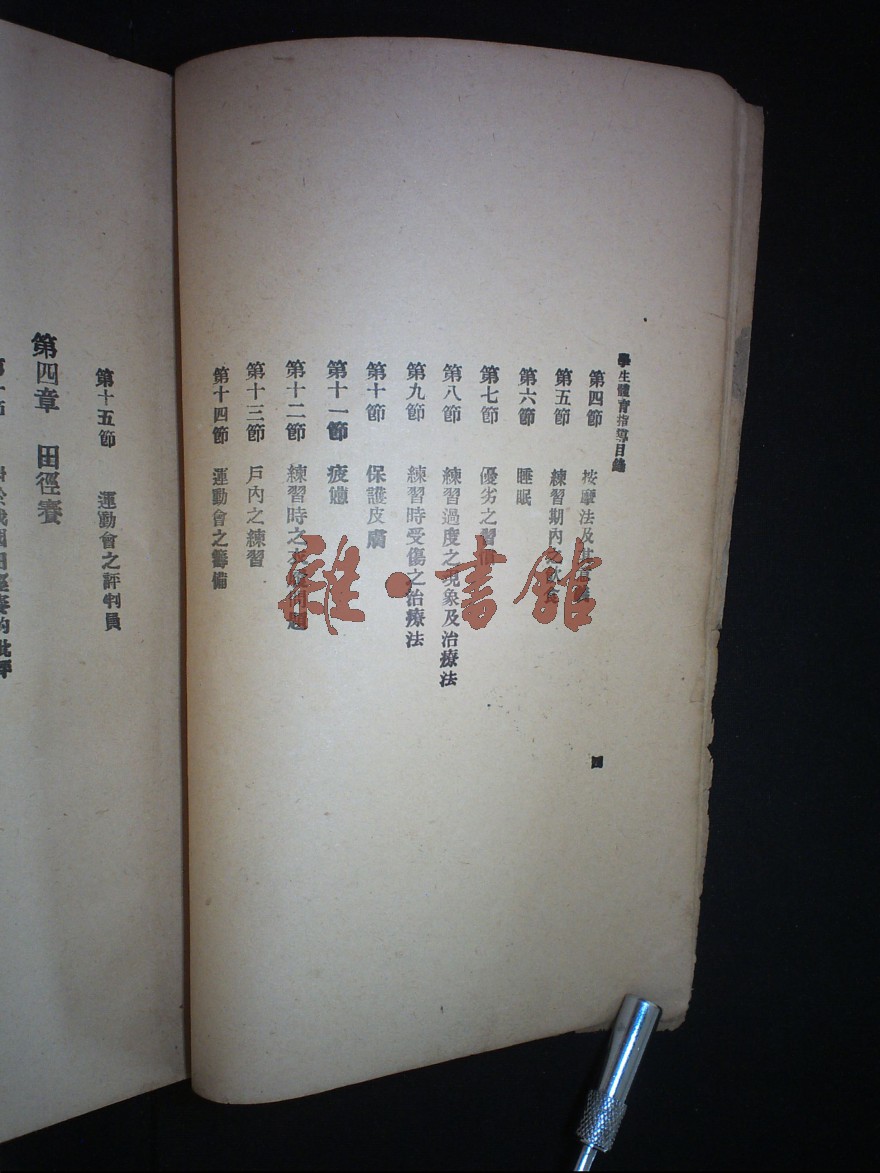 學生體育指導目錄
第四節 按摩法及其
第五節 練習期內之飲食
第六節 睡眠
第七節 優劣之習慣
第八節 練習過度之現象及治療法
第九節 練習時受傷之治療法
第十節 保護皮膚
第十一節 疲憊
第十二節 練習時之 問題
第十三節 戶內之練習
第十四節 運動會之籌備
四
第十五節 運動會之評判員
第四章 田徑賽
第一節 對於我國田徑賽的批評
雜·書館